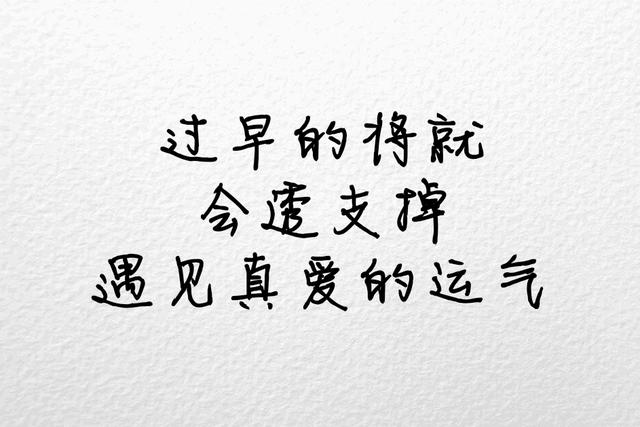 过早的将就
会透支掉
遇见真爱的运气